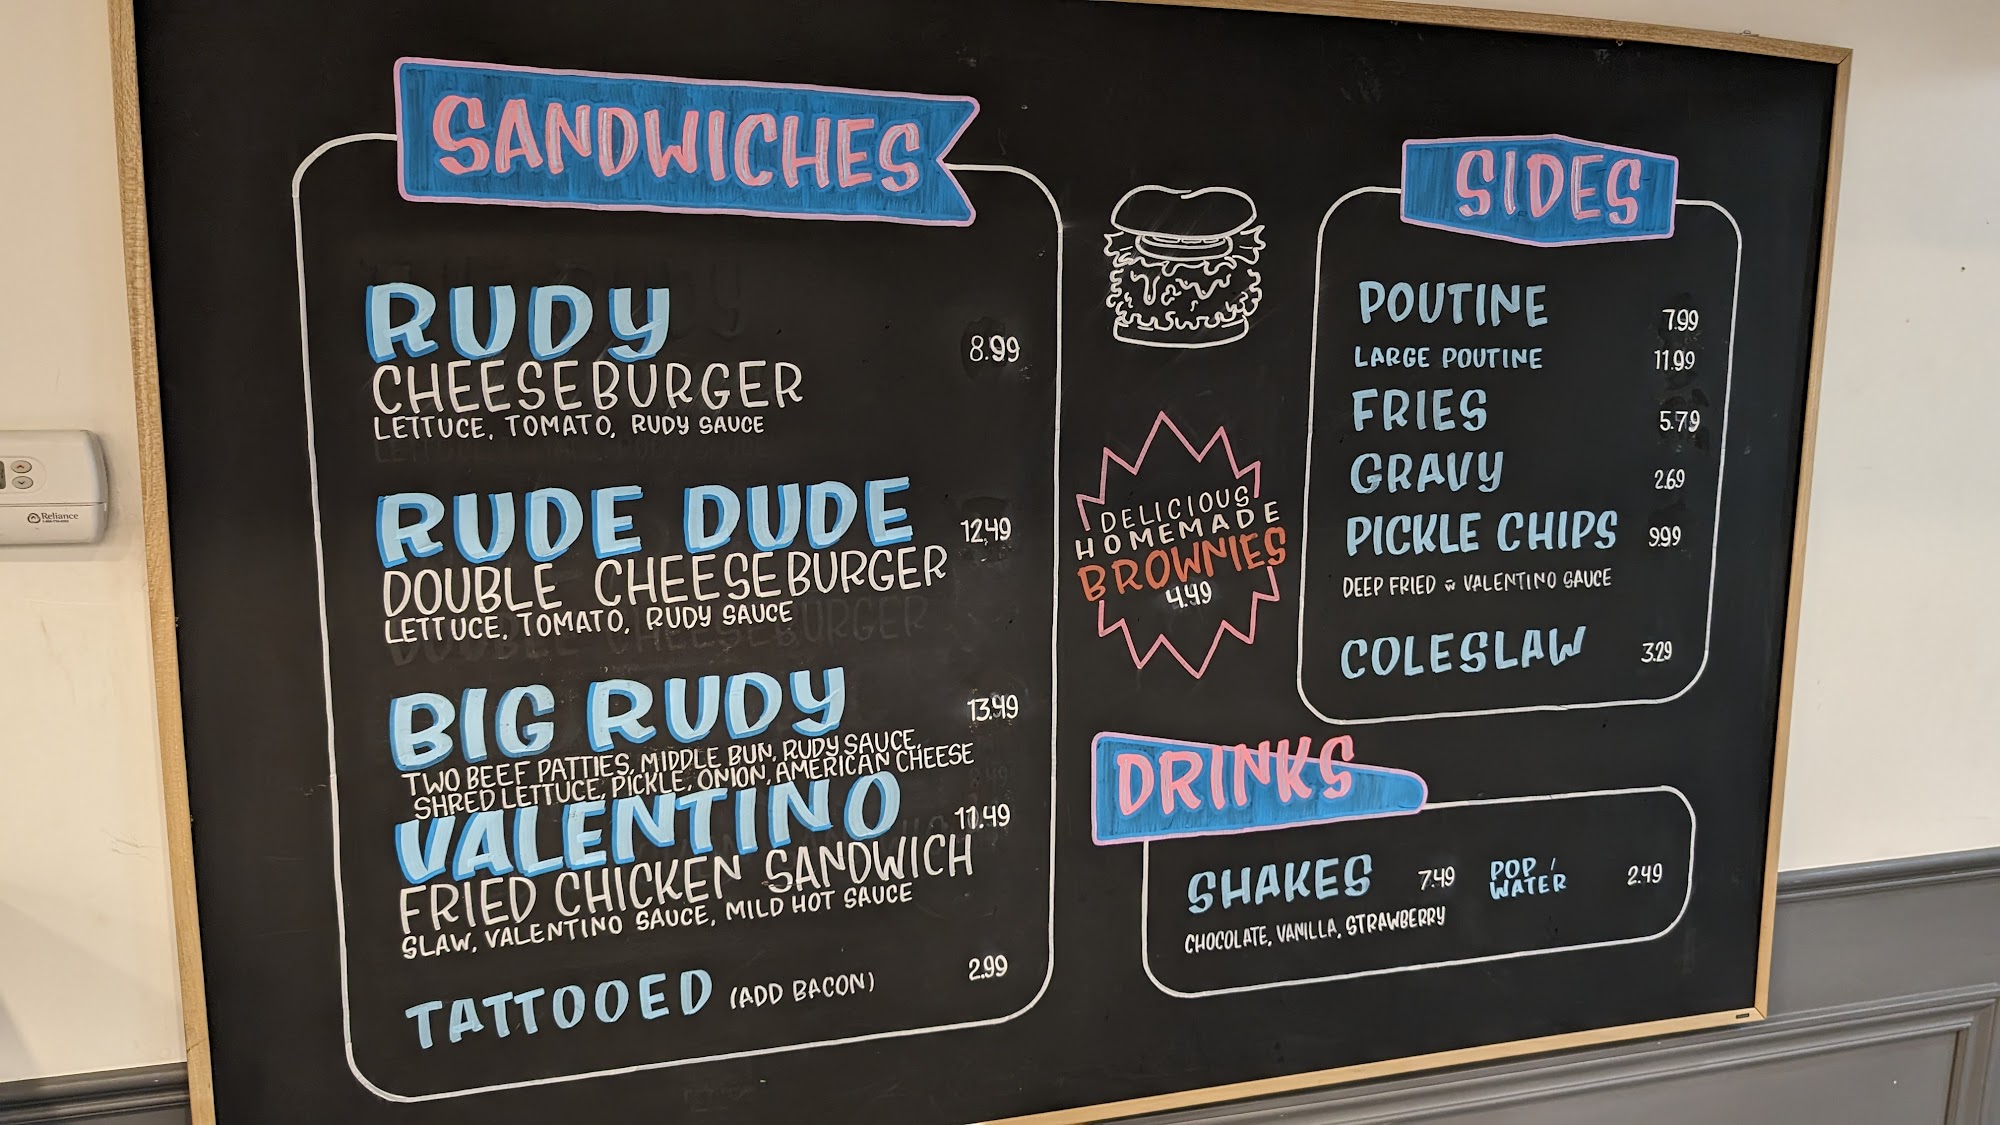 SANDWICHES
RUDY 8.99
CHEESEBURGER
LETTUCE, TOMATO, RUDY SAUCE
RUDE DUDE 12.49
DOUBLE CHEESEBURGER
LETTUCE, TOMATO, RUDY SAUCE
BIG RUDY 13.49
TWO BEEF PATTIES, MIDDLE BUN, RUDY SAUCE,
SHRED LETTUCE, PICKLE, ONION, AMERICAN CHEESE
VALENTINO 11.49
FRIED CHICKEN SANDWICH
SLAW, VALENTINO SAUCE, MILD HOT SAUCE
TATTOOED (ADD BACON) 2.99
DELICIOUS
HOMEMADE
BROWNIES
4.49
SIDES
POUTINE 7.99
LARGE POUTINE 11.99
FRIES 5.79
GRAVY 2.69
PICKLE CHIPS 9.99
DEEP FRIED w VALENTINO SAUCE
COLESLAW 3.29
DRINKS
SHAKES 7.49
CHOCOLATE, VANILLA, STRAWBERRY
POP /
WATER 2.49
Reliance